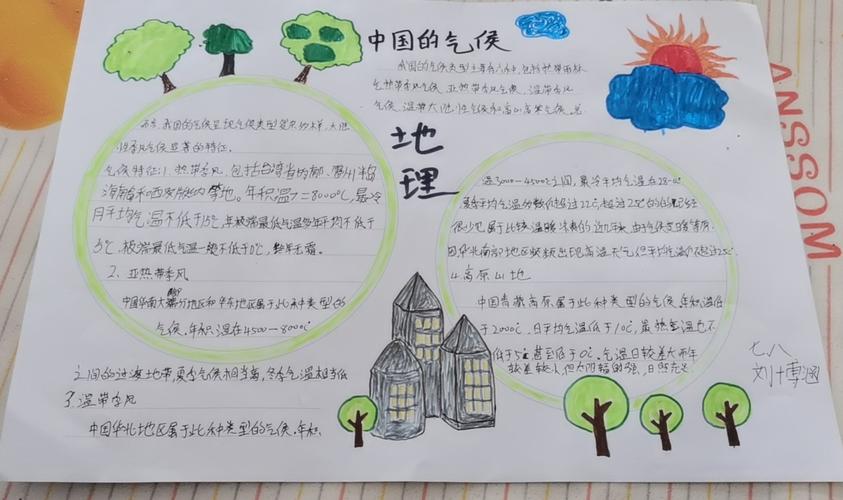 中国的气候
我国的气候类型主要有六种，包括热带雨林
气热带季风气候、亚热带季风气候、温带季风
气候、温带大陆性气候和高山高寒气候。总
地
理
而言，我国的气候呈现气候类型复杂多样，大陆
性季风气候显著的特征。
气候特征：1、热带季风，包括台湾省的南部、雷州半岛
海南岛和西双版纳等地。年积温>=8000℃，最冷
月平均气温不低于15℃，年极端最低气温多年平均不低于
5℃，极端最低气温一般不低于0℃，整年无霜。
2、亚热带季风
中国华南大部分地区和华东地区属于此种类型的
气候。年积温在4500-8000℃
之间的过渡地带，夏季气候相当高，冬季气温相当低
3、温带季风
中国华北地区属于此种类型的气候。年积
温3000-4500℃之间，最冷平均气温在28-
平均气温 超过22℃，超过25℃的
很少
4.高原山地
中国青藏高原属于此种类型的气候，年积温低
于2000℃，日平均气温低于10℃，最热气温也不
低于5℃甚至低于0℃。气温日较差大而年
较差较小，但太阳辐射强，日照充足
七、八
刘博涵
ANSSOM